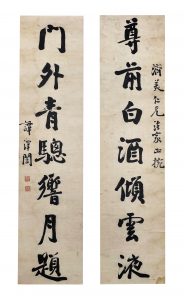 尊前白酒傾雲液
美仁兄法家正
門外青驄響月題
譚澤闓